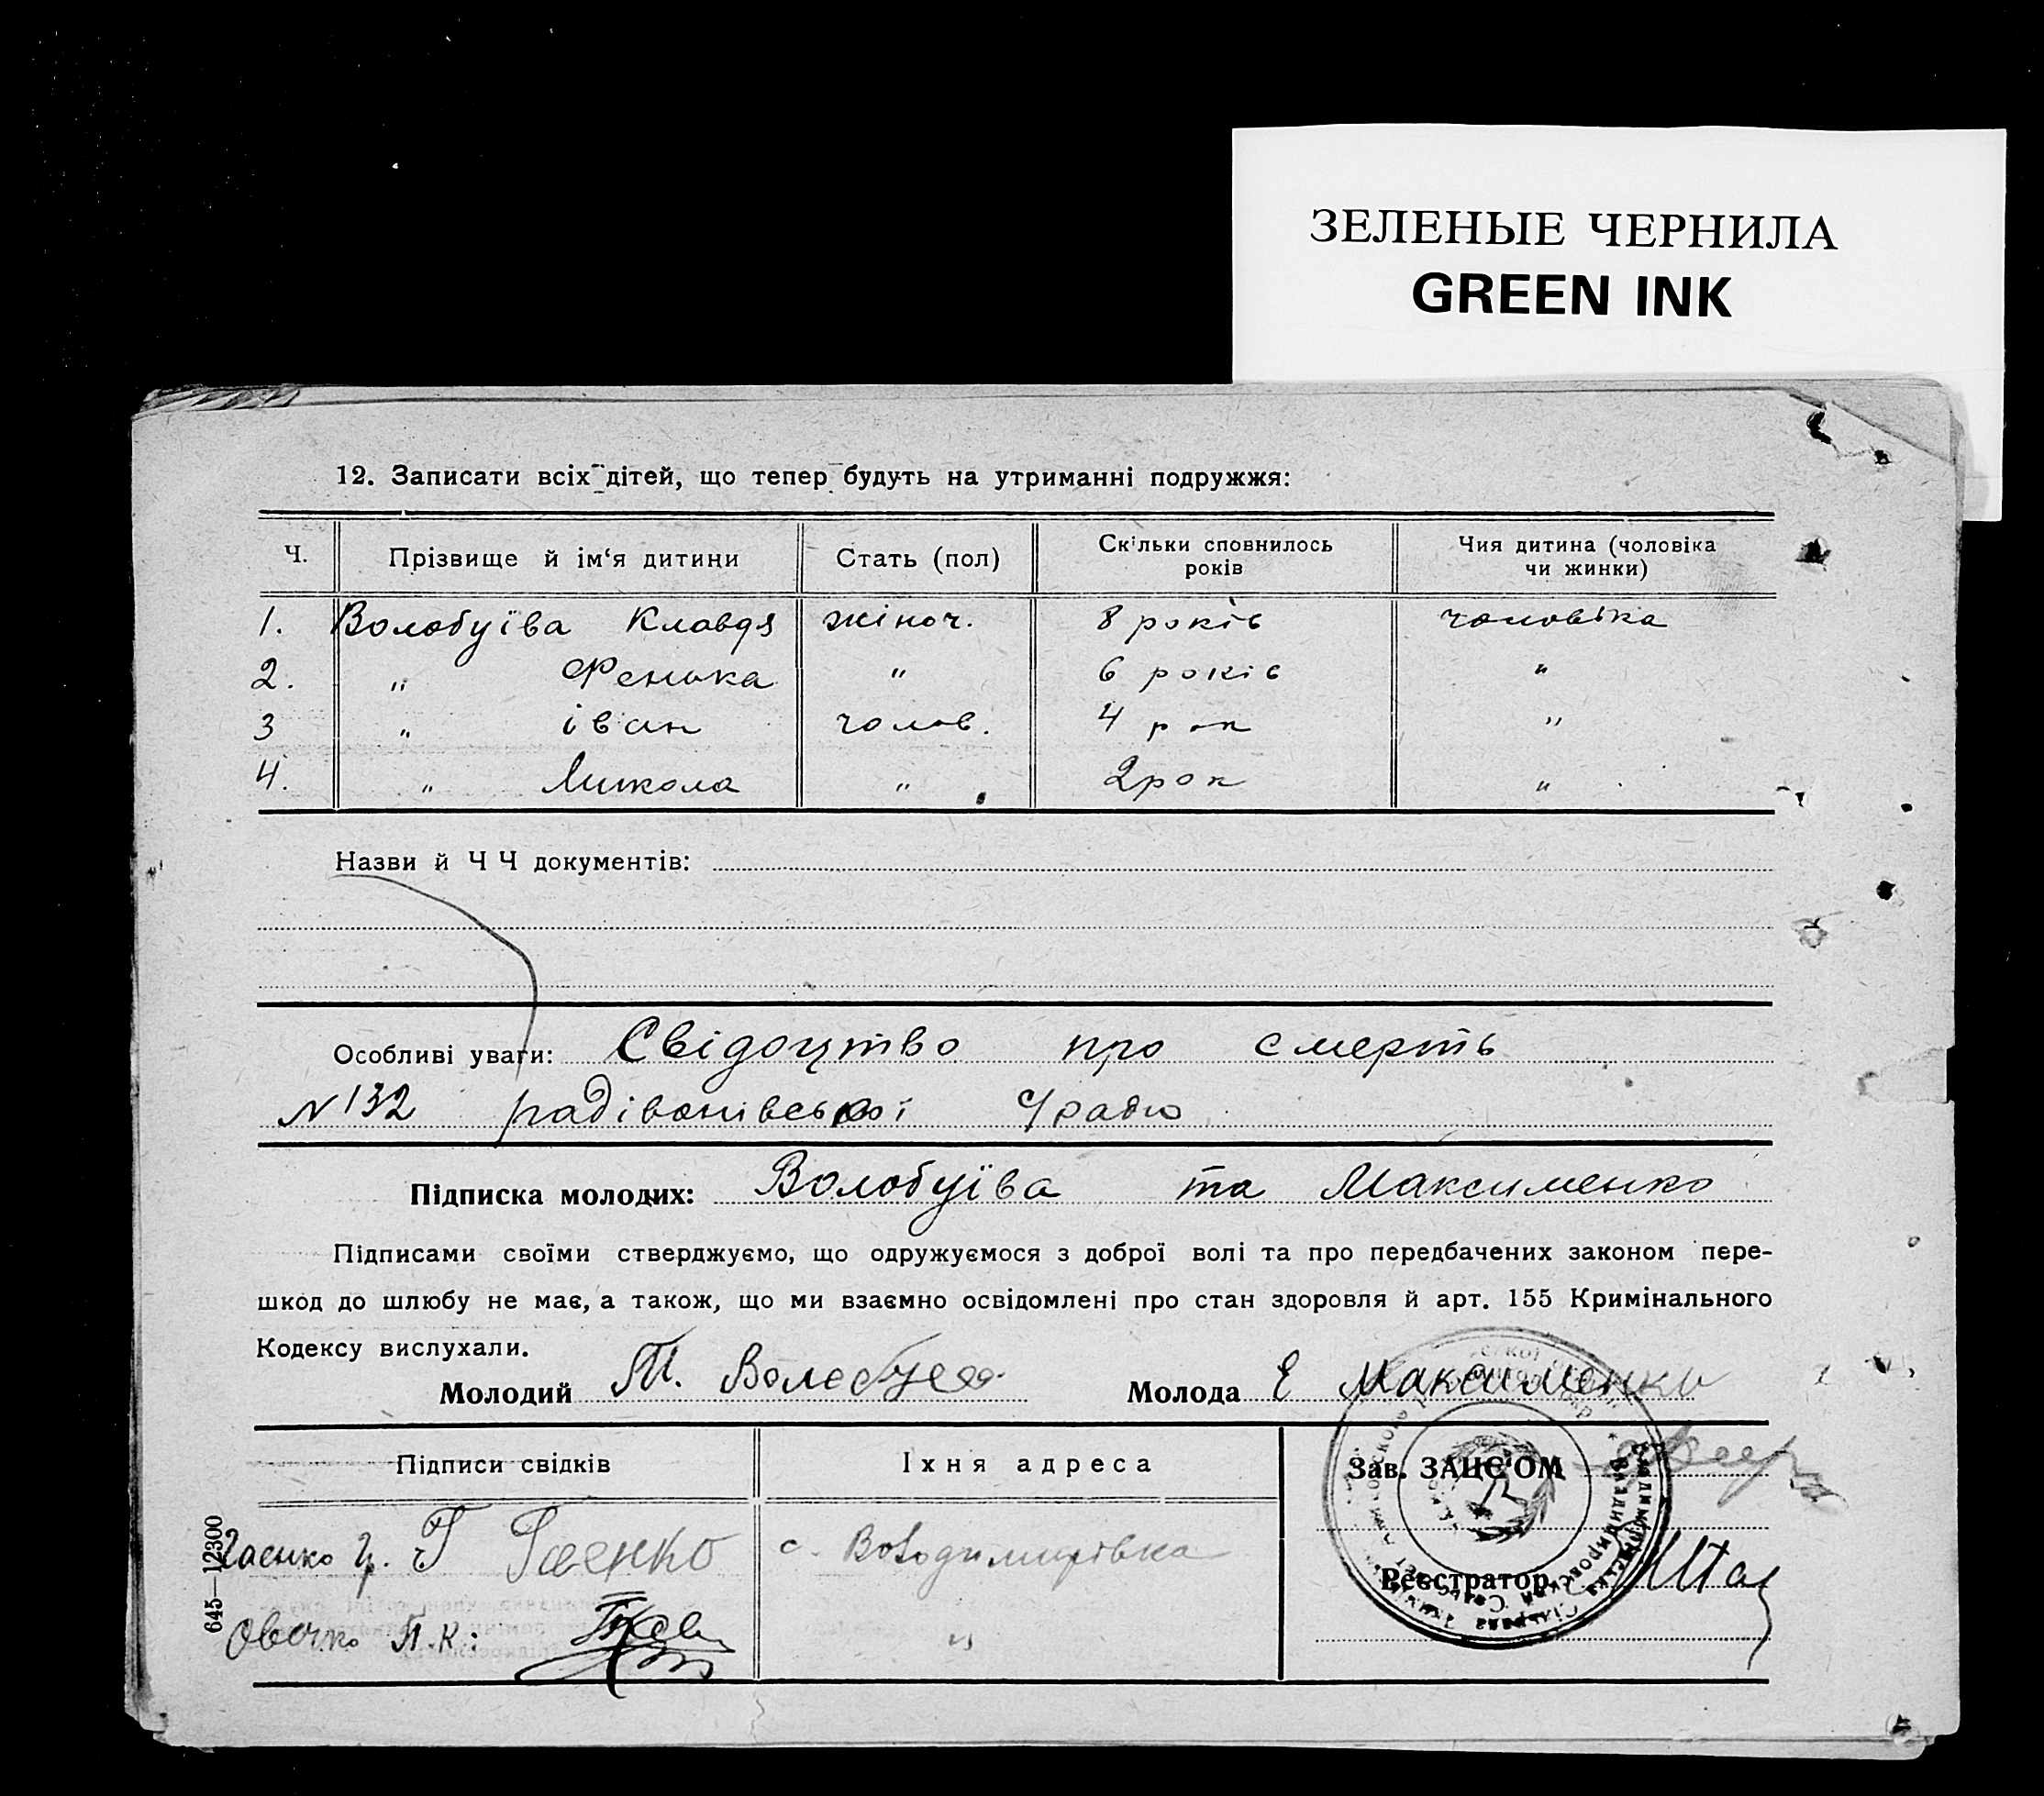 ЗЕЛЕНЫЕ ЧЕРНИЛА
GREEN INK
12. Записати всіх дітей, що тепер будуть на утриманні подружжя:
Ч. Прізвище й ім‘я дитини Стать (пол) Скільки сповнилось років Чия дитина (чоловіка чи жинки)
1. Волобуїва Клавдя жіноч. 8 років чоловіка
2. " Фенька " 6 років "
3 " іван чолов. 4 рок "
4. " Микола " 2 рок "
Назви й Ч Ч документів:
Особливі уваги: Свідоцтво про смерть
N 132 радівонівської
Підписка молодих: Волобуїва та Максименко
Підписами своїми стверджуємо, що одружуємося з доброї волі та про передбачених законом пере-
шкод до шлюбу не має, а також, що ми взаємно освідомлені про стан здоровля й арт. 155 Кримінального
Кодексу вислухали.
Молодий Т. Молода Е Максименко
Підписи свідків Їхня адреса Зав. ЗАЦС'ОМ
Гаенко Г. Гаенко с. Володимирівка
Реєстратор
Овочко П. К.: "
645—12300